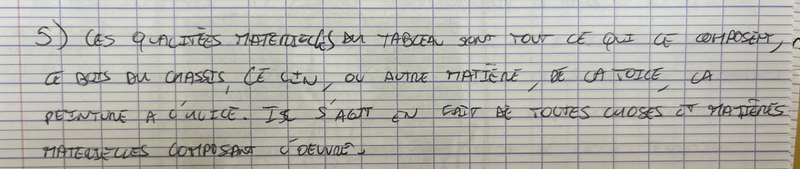 5) LES QUALITÉES MATERIELLES DU TABLEAU SONT TOUT CE QUI LE COMPOSENT,
LE BOIS DU CHASSIS, LE LIN, OU AUTRE MATIÈRE, DE LA TOILE, LA
PEINTURE A L'HUILE. IL S'AGIT EN FAIT DE TOUTES CHOSES ET MATIÈRES
MATERIELLES COMPOSANT L'OEUVRE.